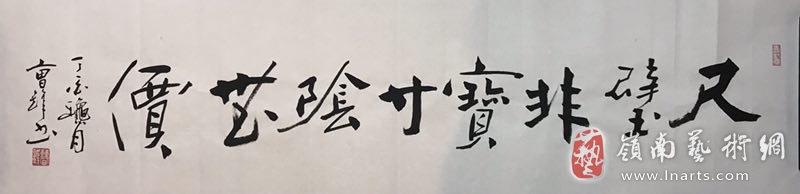 尺璧非寶寸陰無價
丁酉臘月
書
藝
嶺南藝術網
www.lnarts.com